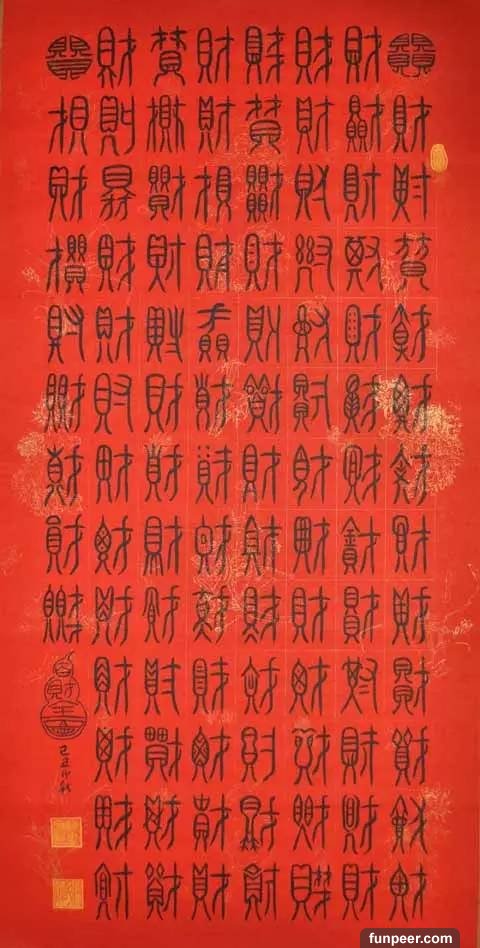 財財財財財財財財財財財財財
財財財財財財財財財財財財財
財財財財財財財財財財財財財
財財財財財財財財財財財財財
財財財財財財財財財財財財財
財財財財財財財財財財財財財
財財財財財財財財財財財財財
財財財財財財財財財
百財
己丑仲秋
funpeer.com